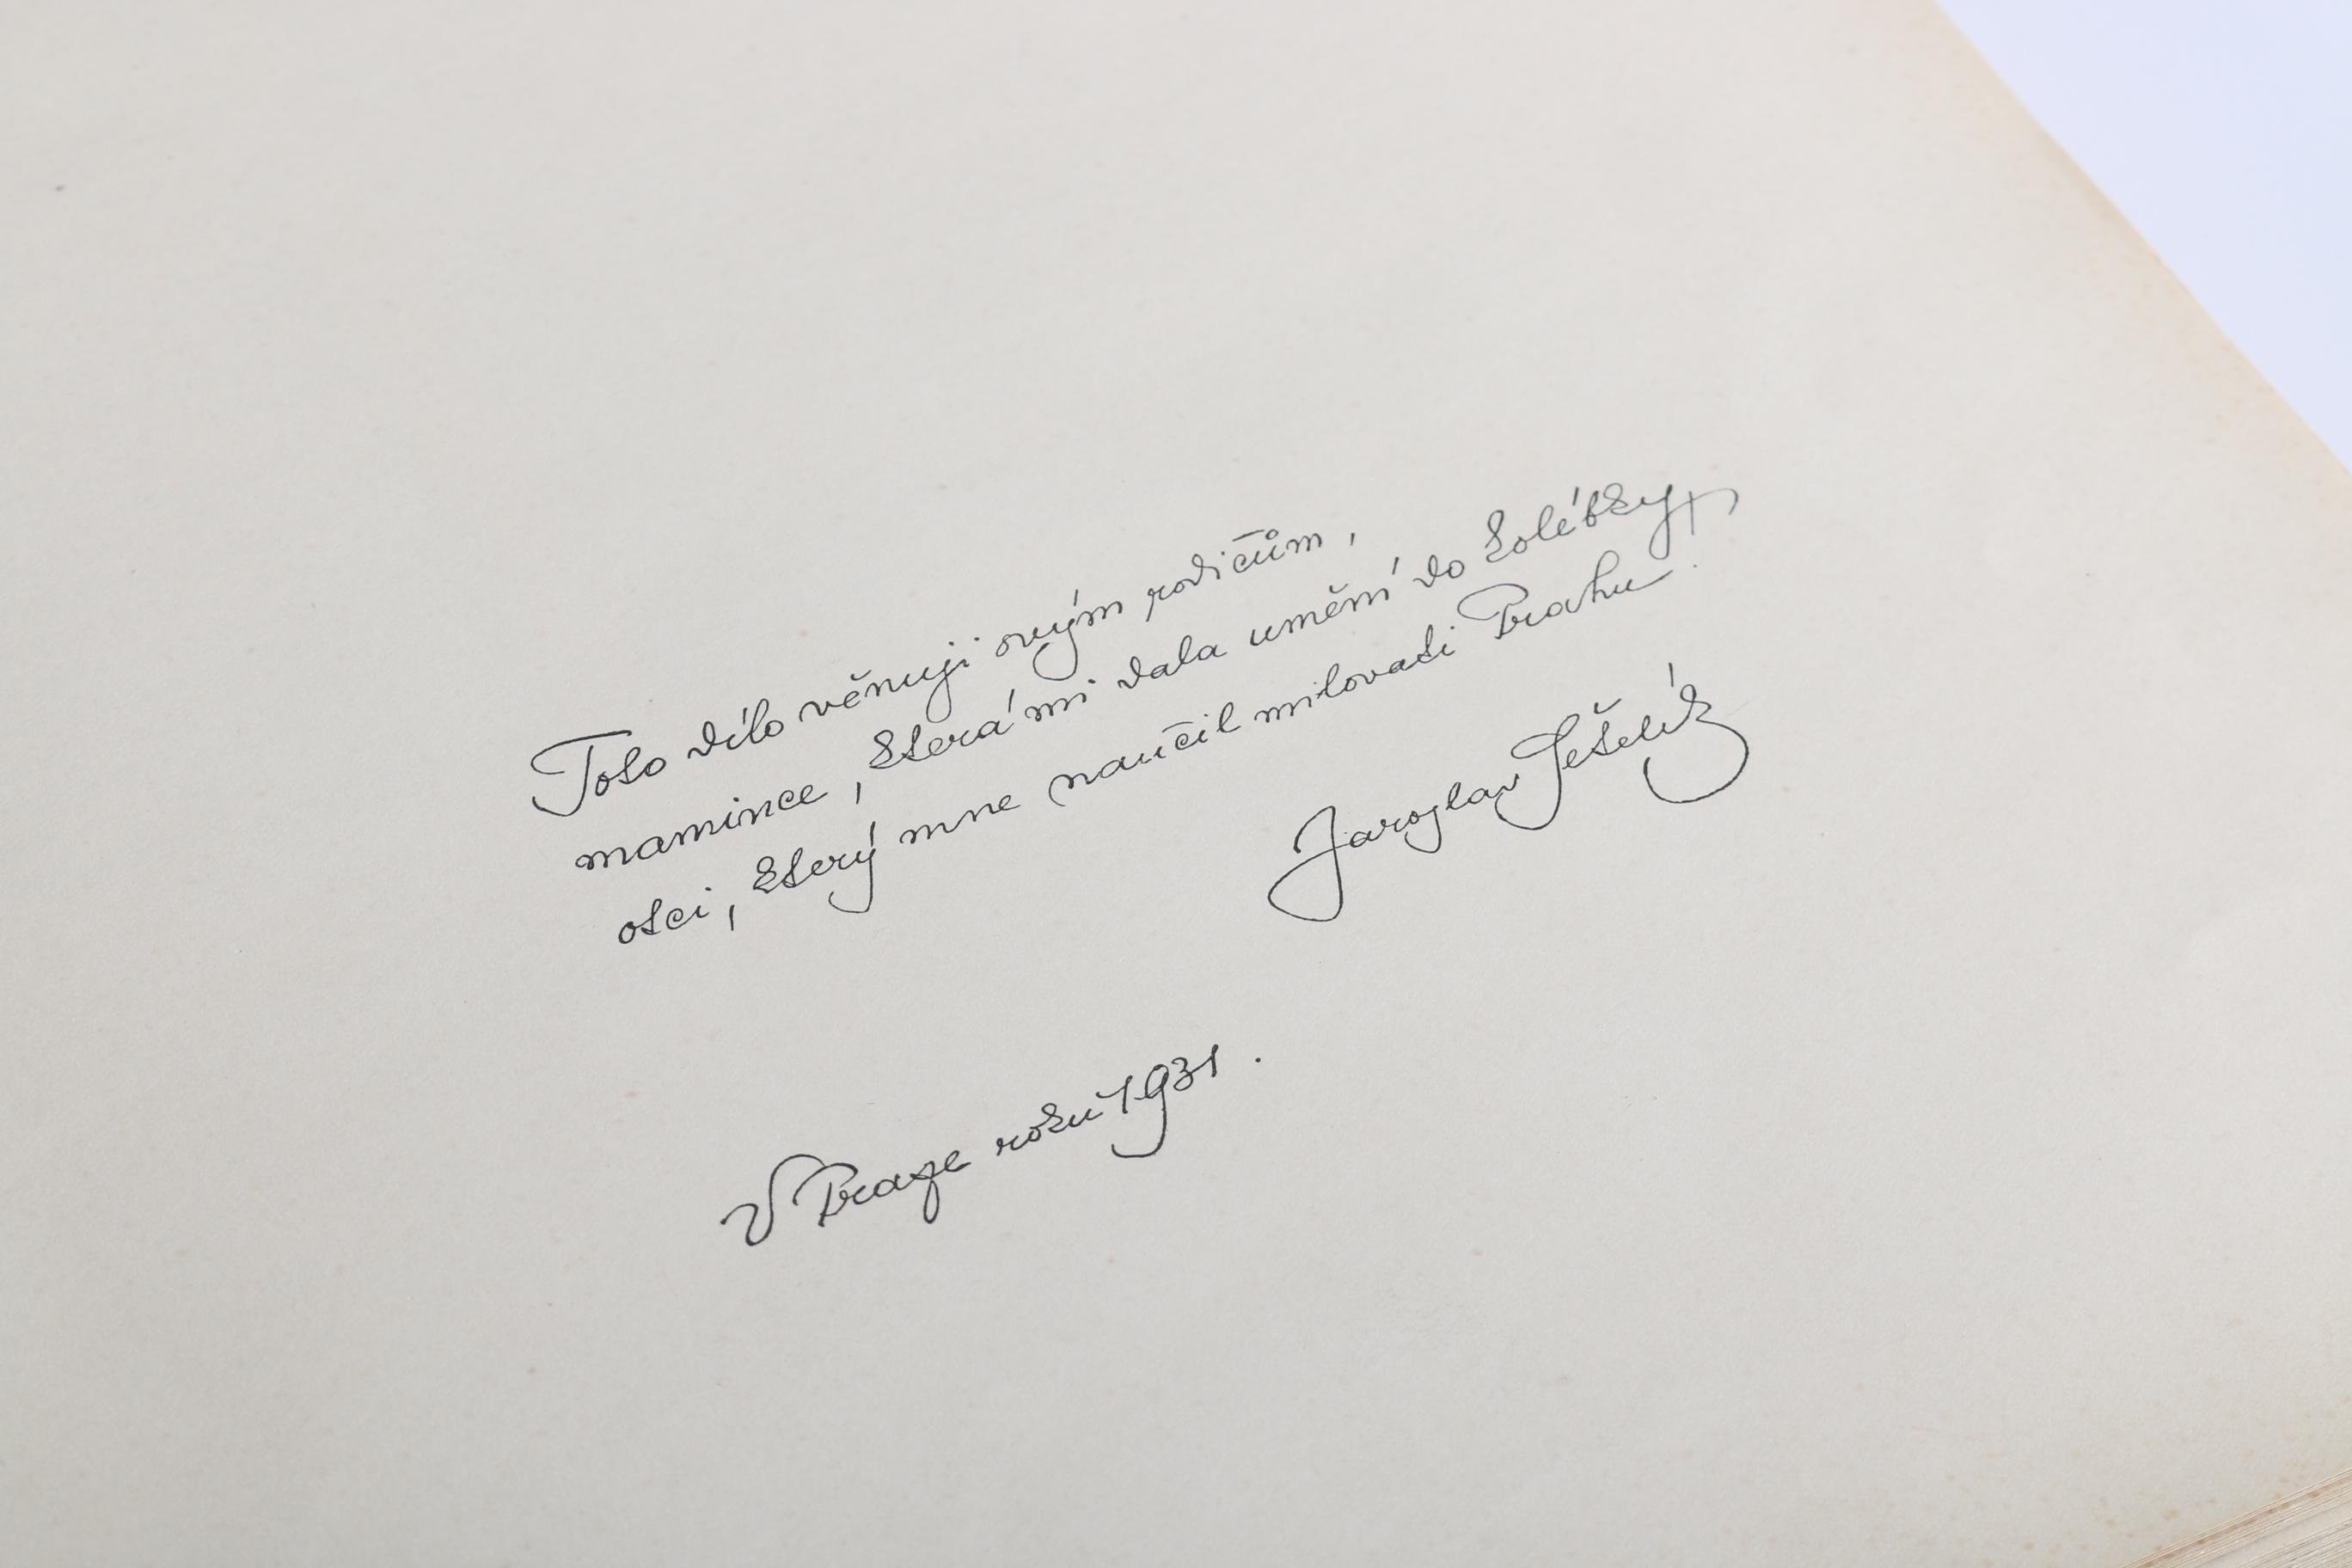 Toto dílo věnuji svým rodičům,
mamince, která mi dala umění do kolébky,
otci, který mne naučil milovati Prahu.
Jaroslav Ješelík
V Praze roku 1931.